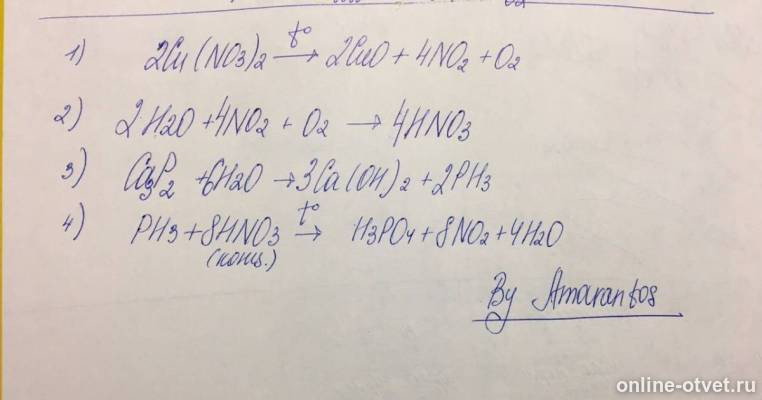 1) 2Cu(NO3)2 t° → 2CuO + 4NO2 + O2
2) 2H2O + 4NO2 + O2 → 4HNO3
3) Ca3P2 + 6H2O → 3Ca(OH)2 + 2PH3
4) PH3 + 8HNO3 t° → H3PO4 + 8NO2 + 4H2O
(конц.)
By Amarantos
online-otvet.ru